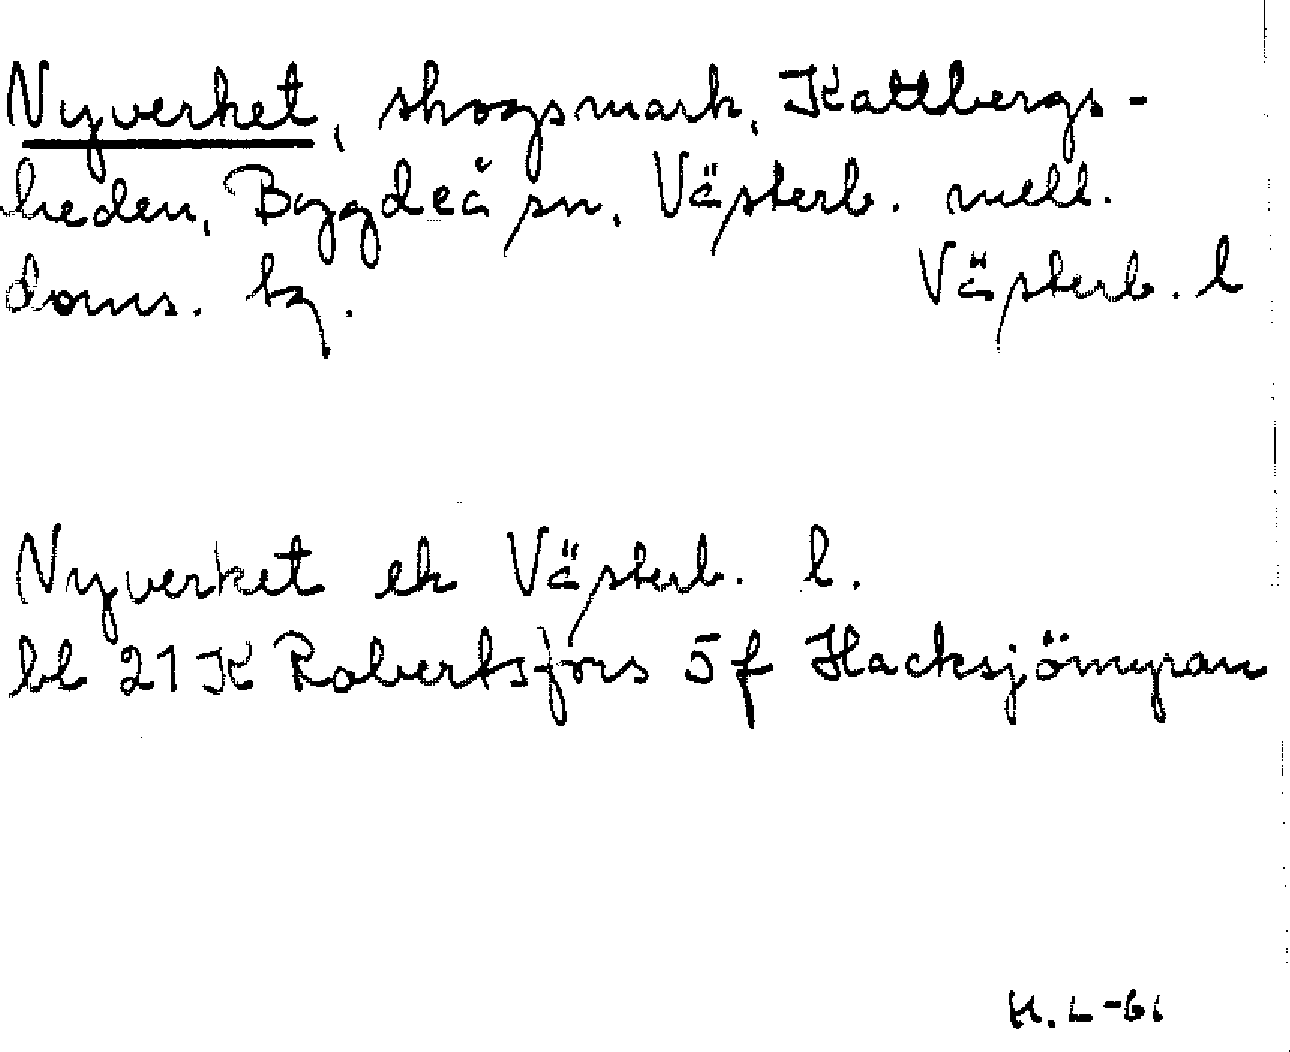 Nyverket, skogsmark, Kattbergs-
heden, Bygdeå sn, Västerb. mell.
doms. tg. Västerb. l
Nyverket ek Västerb. l.
bl 21K Robertsfors 5f Hacksjömyran
H. L-61